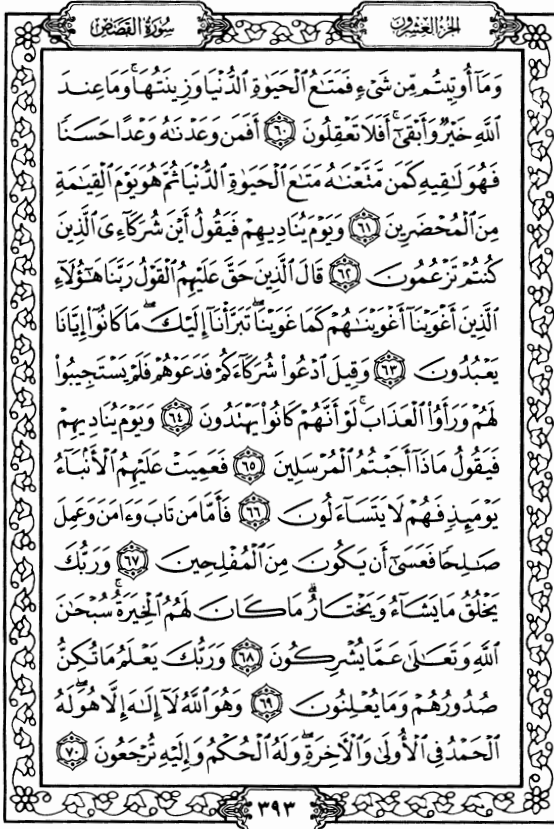 سُورَةُ القَصَصِ
الجُزءُ العِشْرُونَ
وَمَآ أُوتِيتُم مِّن شَىْءٍ فَمَتَٰعُ ٱلْحَيَوٰةِ ٱلدُّنْيَا وَزِينَتُهَا ۚ وَمَا عِندَ
ٱللَّهِ خَيْرٌ وَأَبْقَىٰٓ ۚ أَفَلَا تَعْقِلُونَ ۝٦٠ أَفَمَن وَعَدْنَٰهُ وَعْدًا حَسَنًا
فَهُوَ لَٰقِيهِ كَمَن مَّتَّعْنَٰهُ مَتَٰعَ ٱلْحَيَوٰةِ ٱلدُّنْيَا ثُمَّ هُوَ يَوْمَ ٱلْقِيَٰمَةِ
مِنَ ٱلْمُحْضَرِينَ ۝٦١ وَيَوْمَ يُنَادِيهِمْ فَيَقُولُ أَيْنَ شُرَكَآءِىَ ٱلَّذِينَ
كُنتُمْ تَزْعُمُونَ ۝٦٢ قَالَ ٱلَّذِينَ حَقَّ عَلَيْهِمُ ٱلْقَوْلُ رَبَّنَا هَٰٓؤُلَآءِ
ٱلَّذِينَ أَغْوَيْنَآ أَغْوَيْنَٰهُمْ كَمَا غَوَيْنَا ۖ تَبَرَّأْنَآ إِلَيْكَ ۖ مَا كَانُوٓا۟ إِيَّانَا
يَعْبُدُونَ ۝٦٣ وَقِيلَ ٱدْعُوا۟ شُرَكَآءَكُمْ فَدَعَوْهُمْ فَلَمْ يَسْتَجِيبُوا۟
لَهُمْ وَرَأَوُا۟ ٱلْعَذَابَ ۚ لَوْ أَنَّهُمْ كَانُوا۟ يَهْتَدُونَ ۝٦٤ وَيَوْمَ يُنَادِيهِمْ
فَيَقُولُ مَاذَآ أَجَبْتُمُ ٱلْمُرْسَلِينَ ۝٦٥ فَعَمِيَتْ عَلَيْهِمُ ٱلْأَنۢبَآءُ
يَوْمَئِذٍ فَهُمْ لَا يَتَسَآءَلُونَ ۝٦٦ فَأَمَّا مَن تَابَ وَءَامَنَ وَعَمِلَ
صَٰلِحًا فَعَسَىٰٓ أَن يَكُونَ مِنَ ٱلْمُفْلِحِينَ ۝٦٧ وَرَبُّكَ
يَخْلُقُ مَا يَشَآءُ وَيَخْتَارُ ۗ مَا كَانَ لَهُمُ ٱلْخِيَرَةُ ۚ سُبْحَٰنَ
ٱللَّهِ وَتَعَٰلَىٰ عَمَّا يُشْرِكُونَ ۝٦٨ وَرَبُّكَ يَعْلَمُ مَا تُكِنُّ
صُدُورُهُمْ وَمَا يُعْلِنُونَ ۝٦٩ وَهُوَ ٱللَّهُ لَآ إِلَٰهَ إِلَّا هُوَ ۖ لَهُ
ٱلْحَمْدُ فِى ٱلْأُولَىٰ وَٱلْءَاخِرَةِ ۖ وَلَهُ ٱلْحُكْمُ وَإِلَيْهِ تُرْجَعُونَ ۝٧٠
٣٩٣